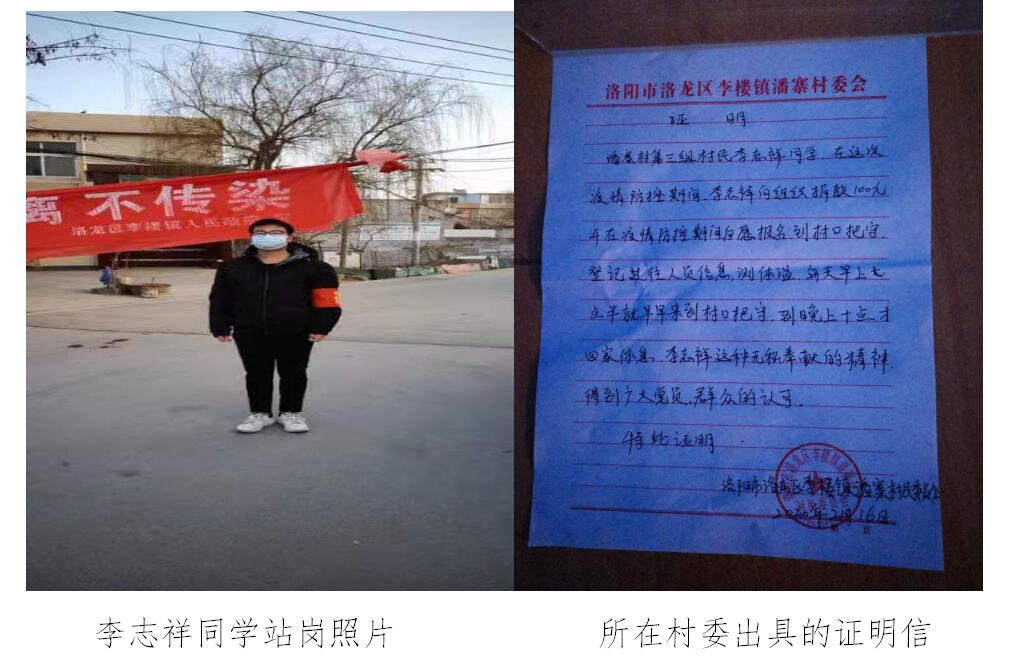 离 不传染
洛龙区李楼镇人民政府
洛阳市洛龙区李楼镇潘寨村委会
证 明
潘寨村第三组村民李志祥同学,在这次
疫情防控期间,李志祥向组织捐款100元
并在疫情防控期间自愿报名到村口把守,
登记进往人员信息,测体温,每天早上七
点半就早早来到村口把守,到晚上十点才
回家休息,李志祥这种无私奉献的精神
得到广大党员、群众的认可。
特此证明.
洛阳市洛龙区李楼镇潘寨村民委员会
2020年2月16日
李志祥同学站岗照片
所在村委出具的证明信